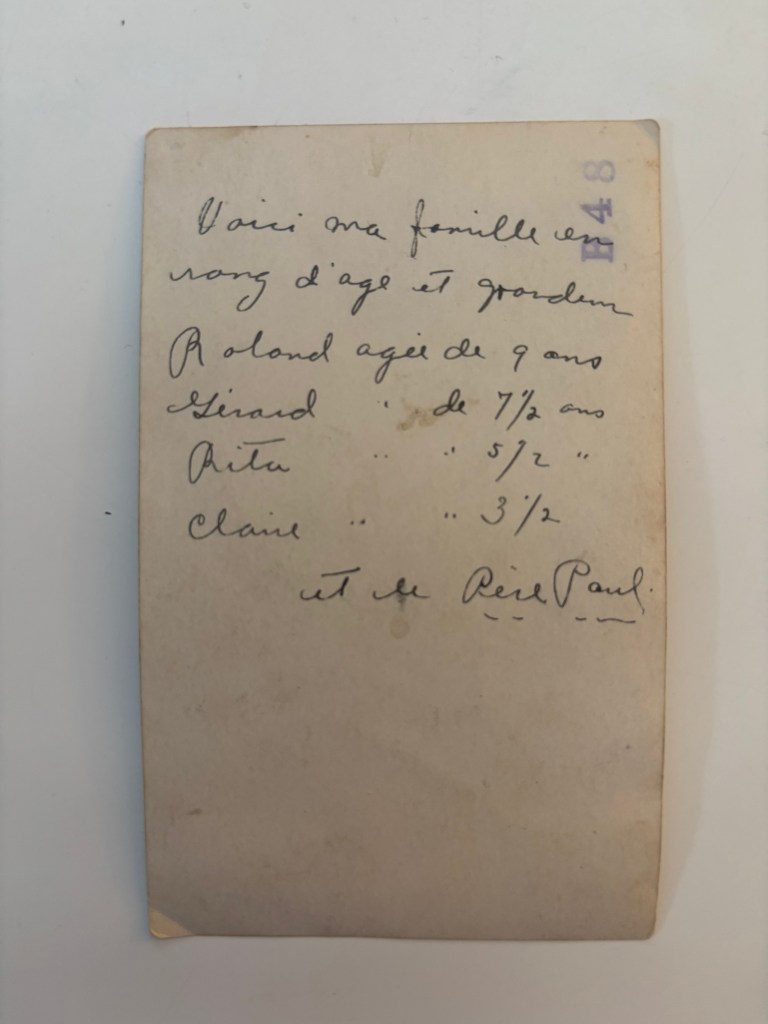 E48
Voici ma famille en
rang d'age et grandeur
Roland agée de 9 ans
Gérard " de 7 1/2 ans
Rita " " 5 1/2 "
Claire " " 3 1/2
et le Père Paul.